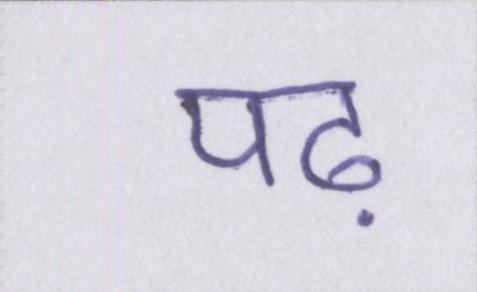 पढ़